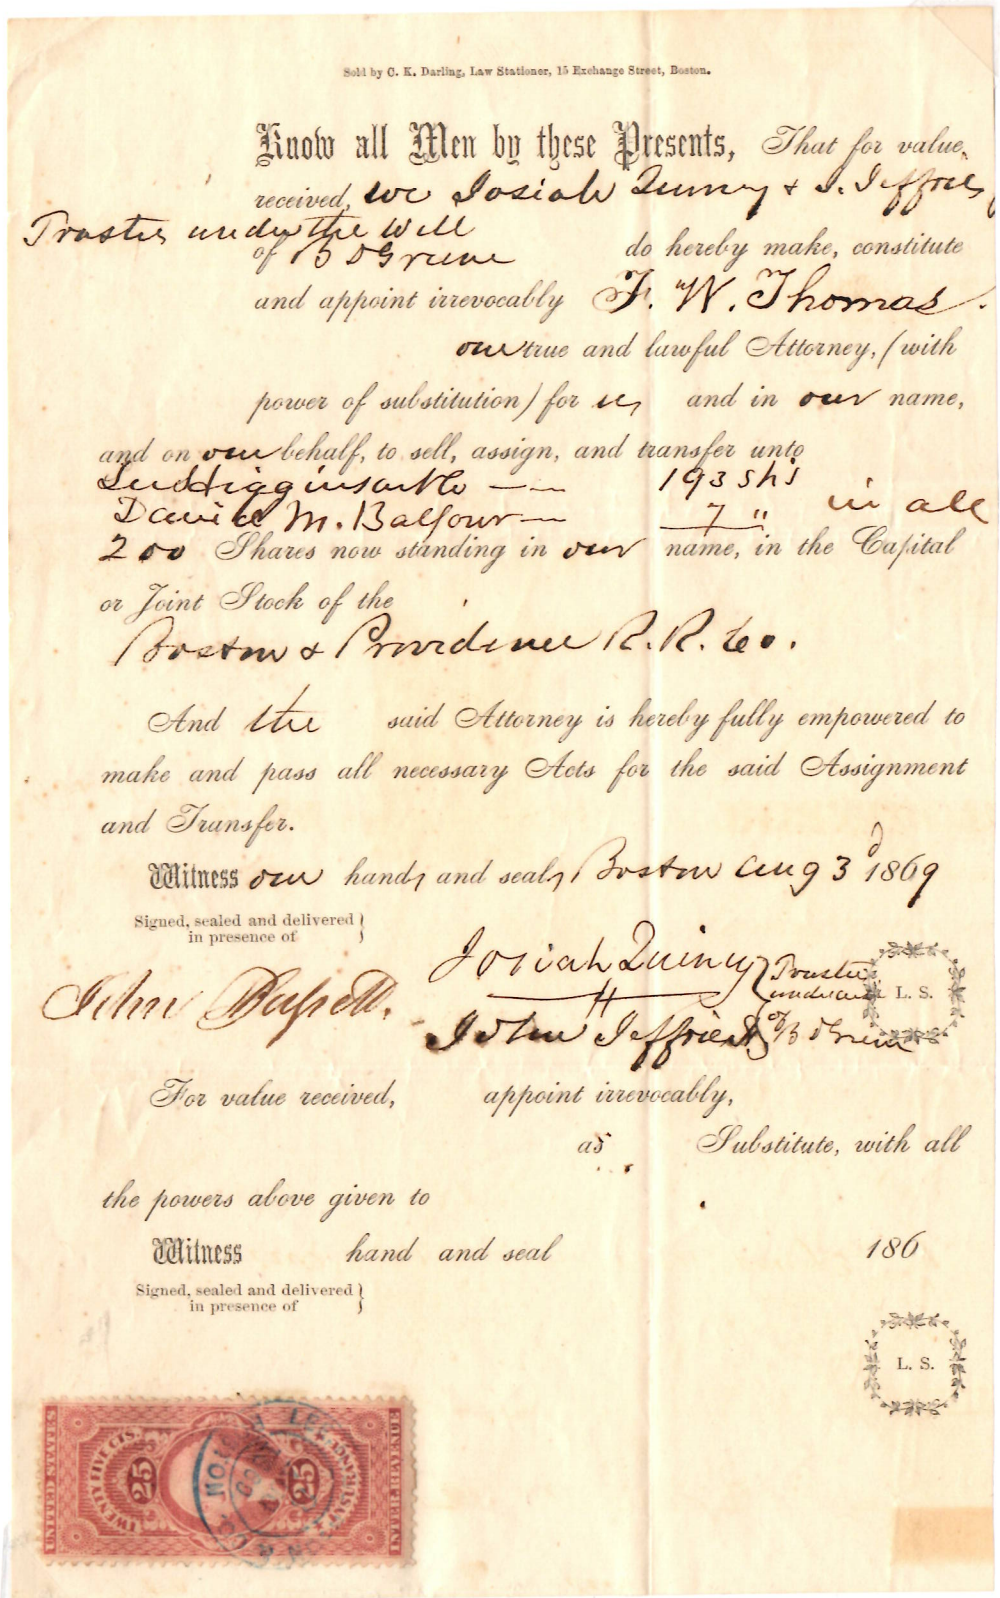 Sold by C. K. Darling, Law Stationer, 15 Exchange Street, Boston.
Know all Men by these Presents, That for value
received, we Josiah Quincy & J. Jeffries
Trustees under the Will
of B D Greene do hereby make, constitute
and appoint irrevocably F. W. Thomas.
our true and lawful Attorney, (with
power of substitution) for us, and in our name,
and on our behalf, to sell, assign, and transfer unto
Lee Higginson & Co — — 193 shs
David M. Balfour — 7 " in all
200 Shares now standing in our name, in the Capital
or Joint Stock of the
Boston & Providence R. R. Co.
And the said Attorney is hereby fully empowered to
make and pass all necessary Acts for the said Assignment
and Transfer.
Witness our hands and seals, Boston Aug 3d 1869
Signed, sealed and delivered
in presence of
Josiah Quincy Trustees
under will L. S.
John Bassett.
John Jeffries of B D Greene
For value received, appoint irrevocably,
as Substitute, with all
the powers above given to
Witness hand and seal 186
Signed, sealed and delivered
in presence of
L. S.
UNITED STATES
TWENTY FIVE CTS.
25
25
INTER. REVENUE